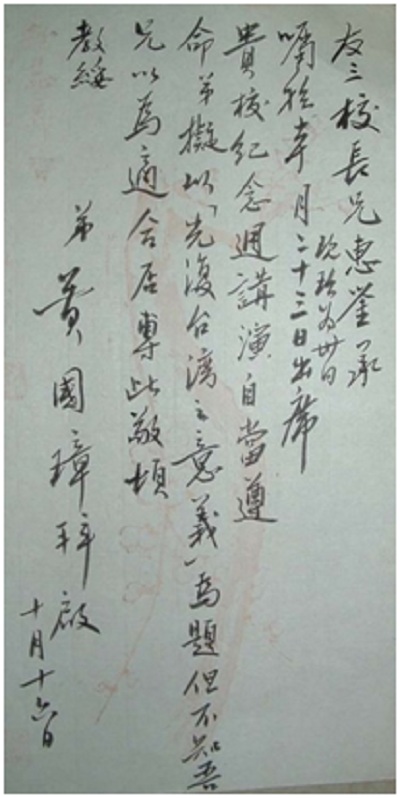 友三校長兄惠鑒承
囑於本月二十三日出席
改於為廿日
貴校紀念週講演自當遵
命弟擬以「光復台灣之意義」為題但不知吾
兄以為適合否專此敬頌
教綏
弟 黃國璋拜啟
十月十六日